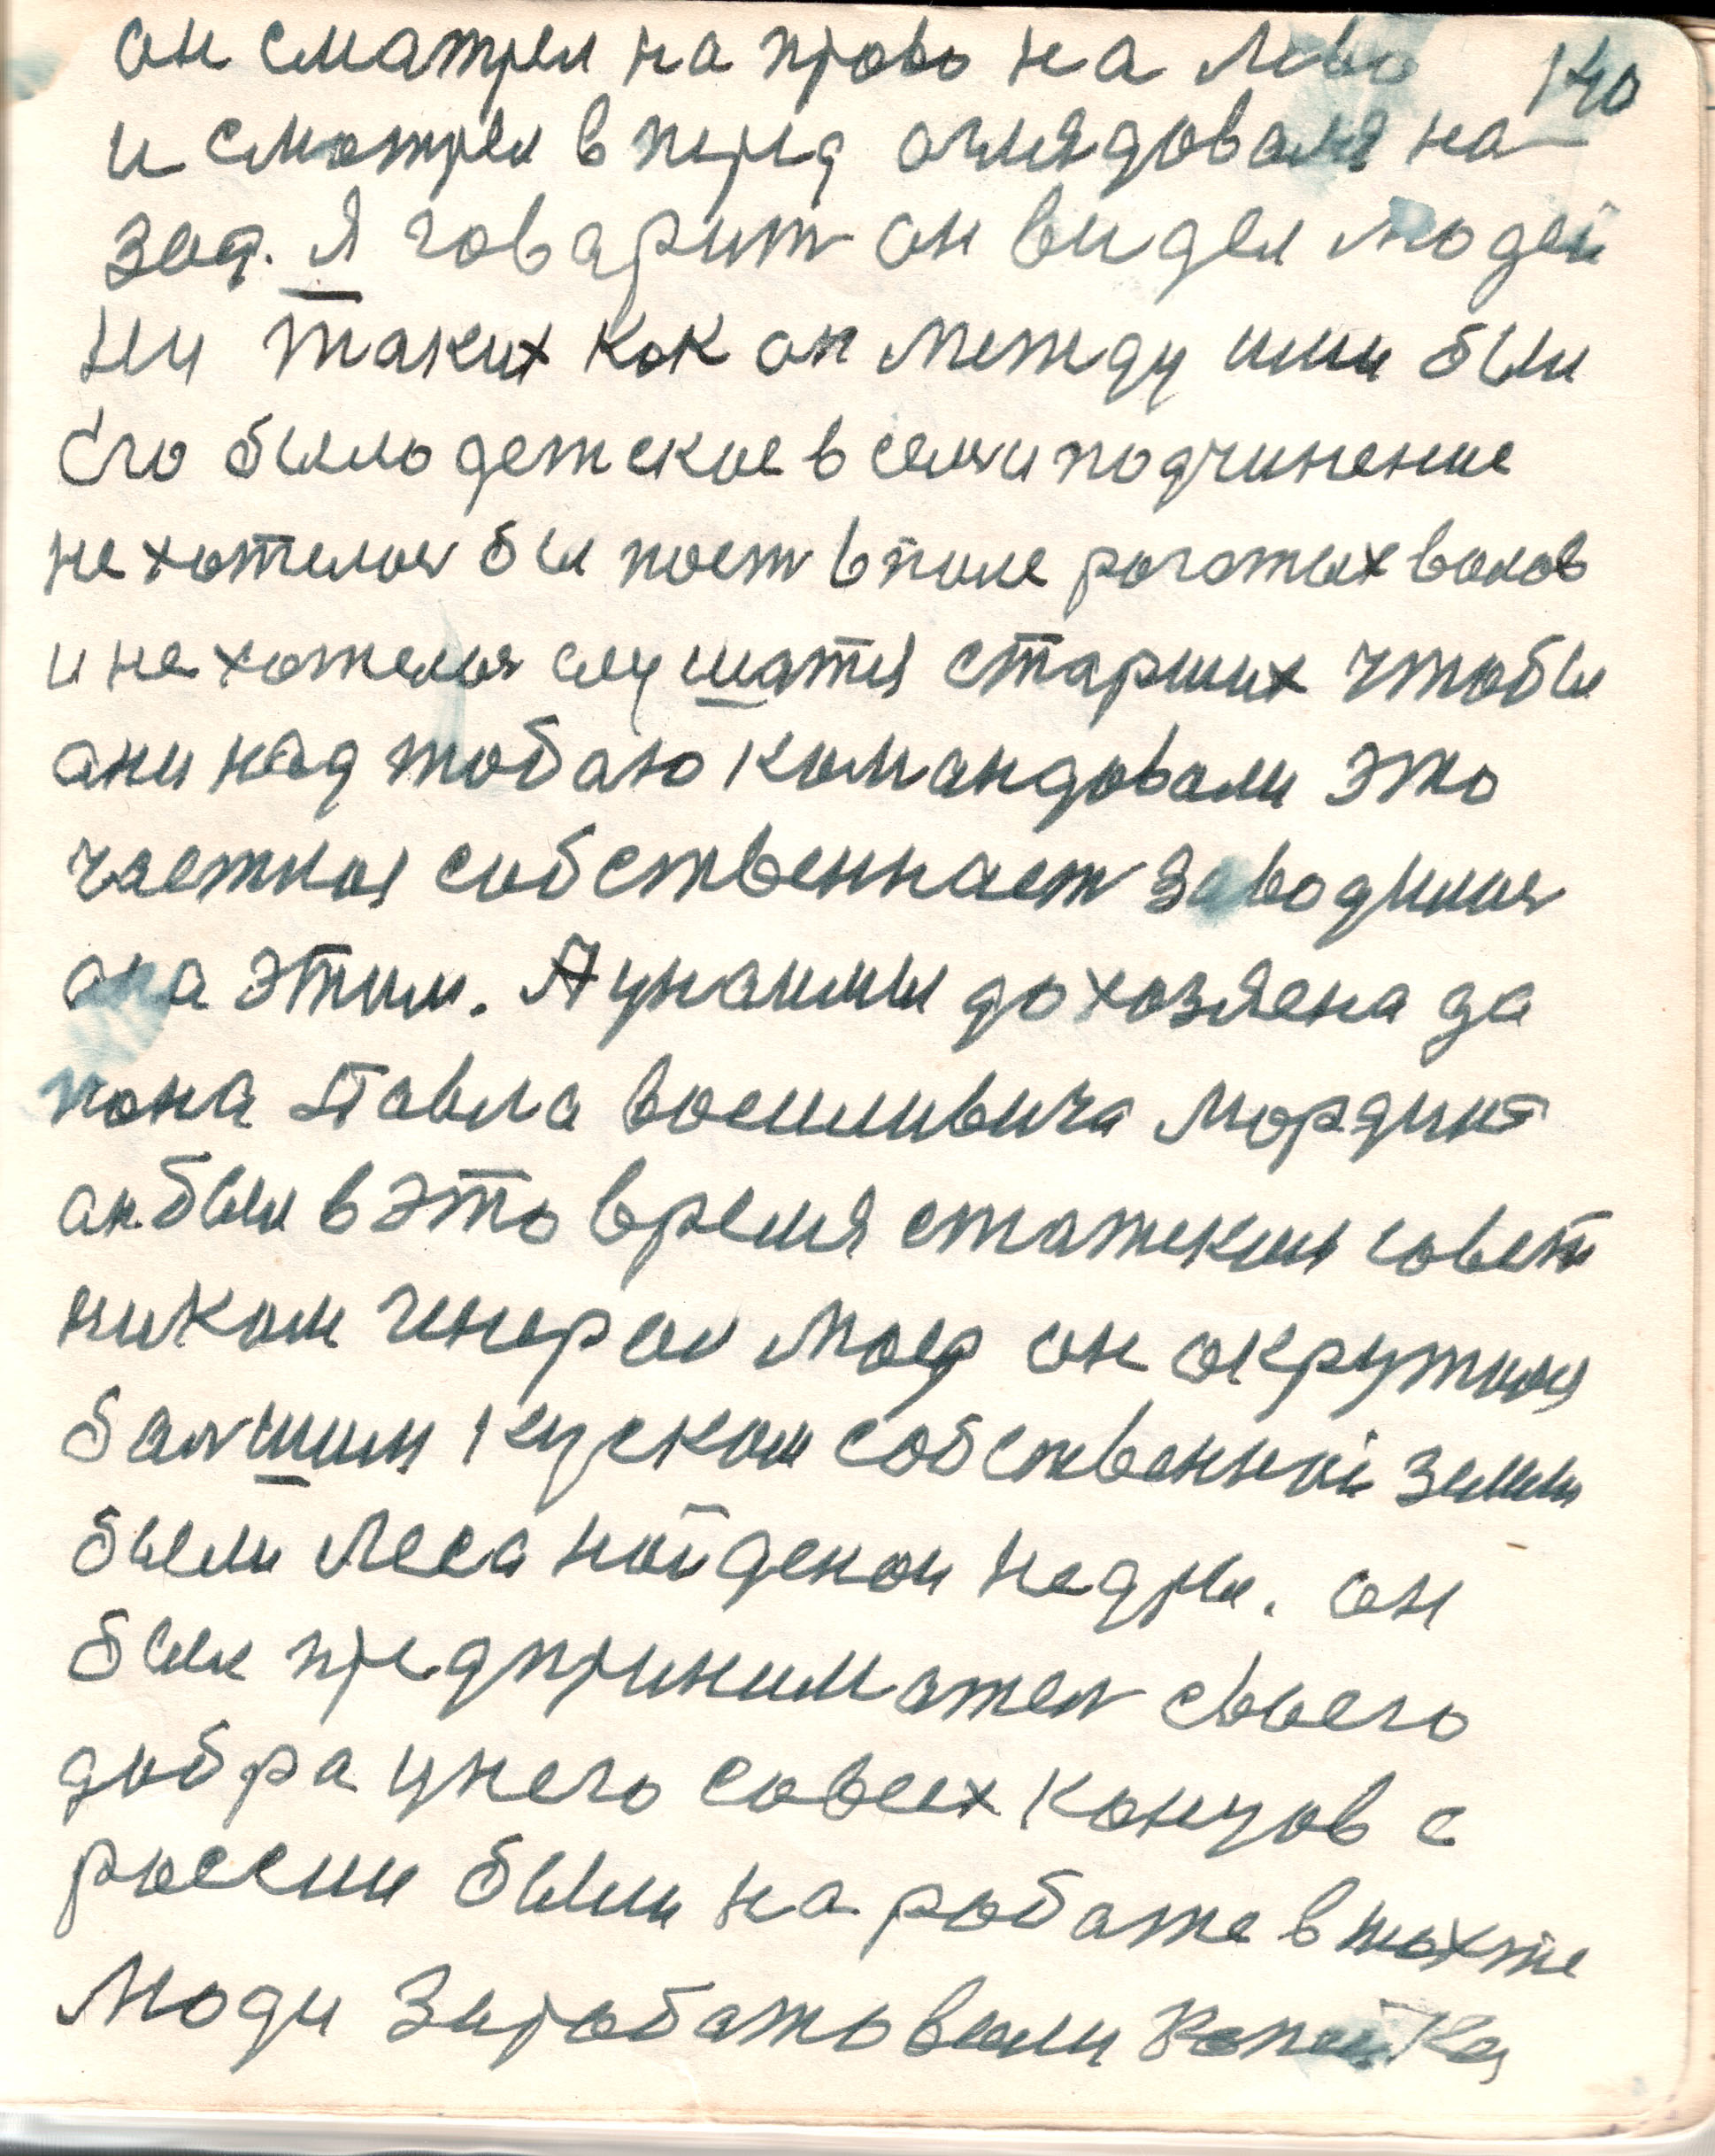 140
он сматрел на право на лево
и смотрел в перед аглядовался на
зад. Я говарит он видел людей
ни таких как он между ими был
Его было детское в семи подчинение
не хотелось бы пост в поле рогатых валов
и не хотелося слушатся старших чтобы
ани над тобаю командовали это
частная собственнаст заводилась
ана этим. А унаишли до хозяена да
пона Павла восиливича Мордин
ан был в это время статским совет
ником генерал маер он акружился
балшим куском собственной земли
были леса найденои недры. он
был предпринимател своего
добра унего совсех концов с
россии были на работе в шахте
Люди зыробатовали Копейку